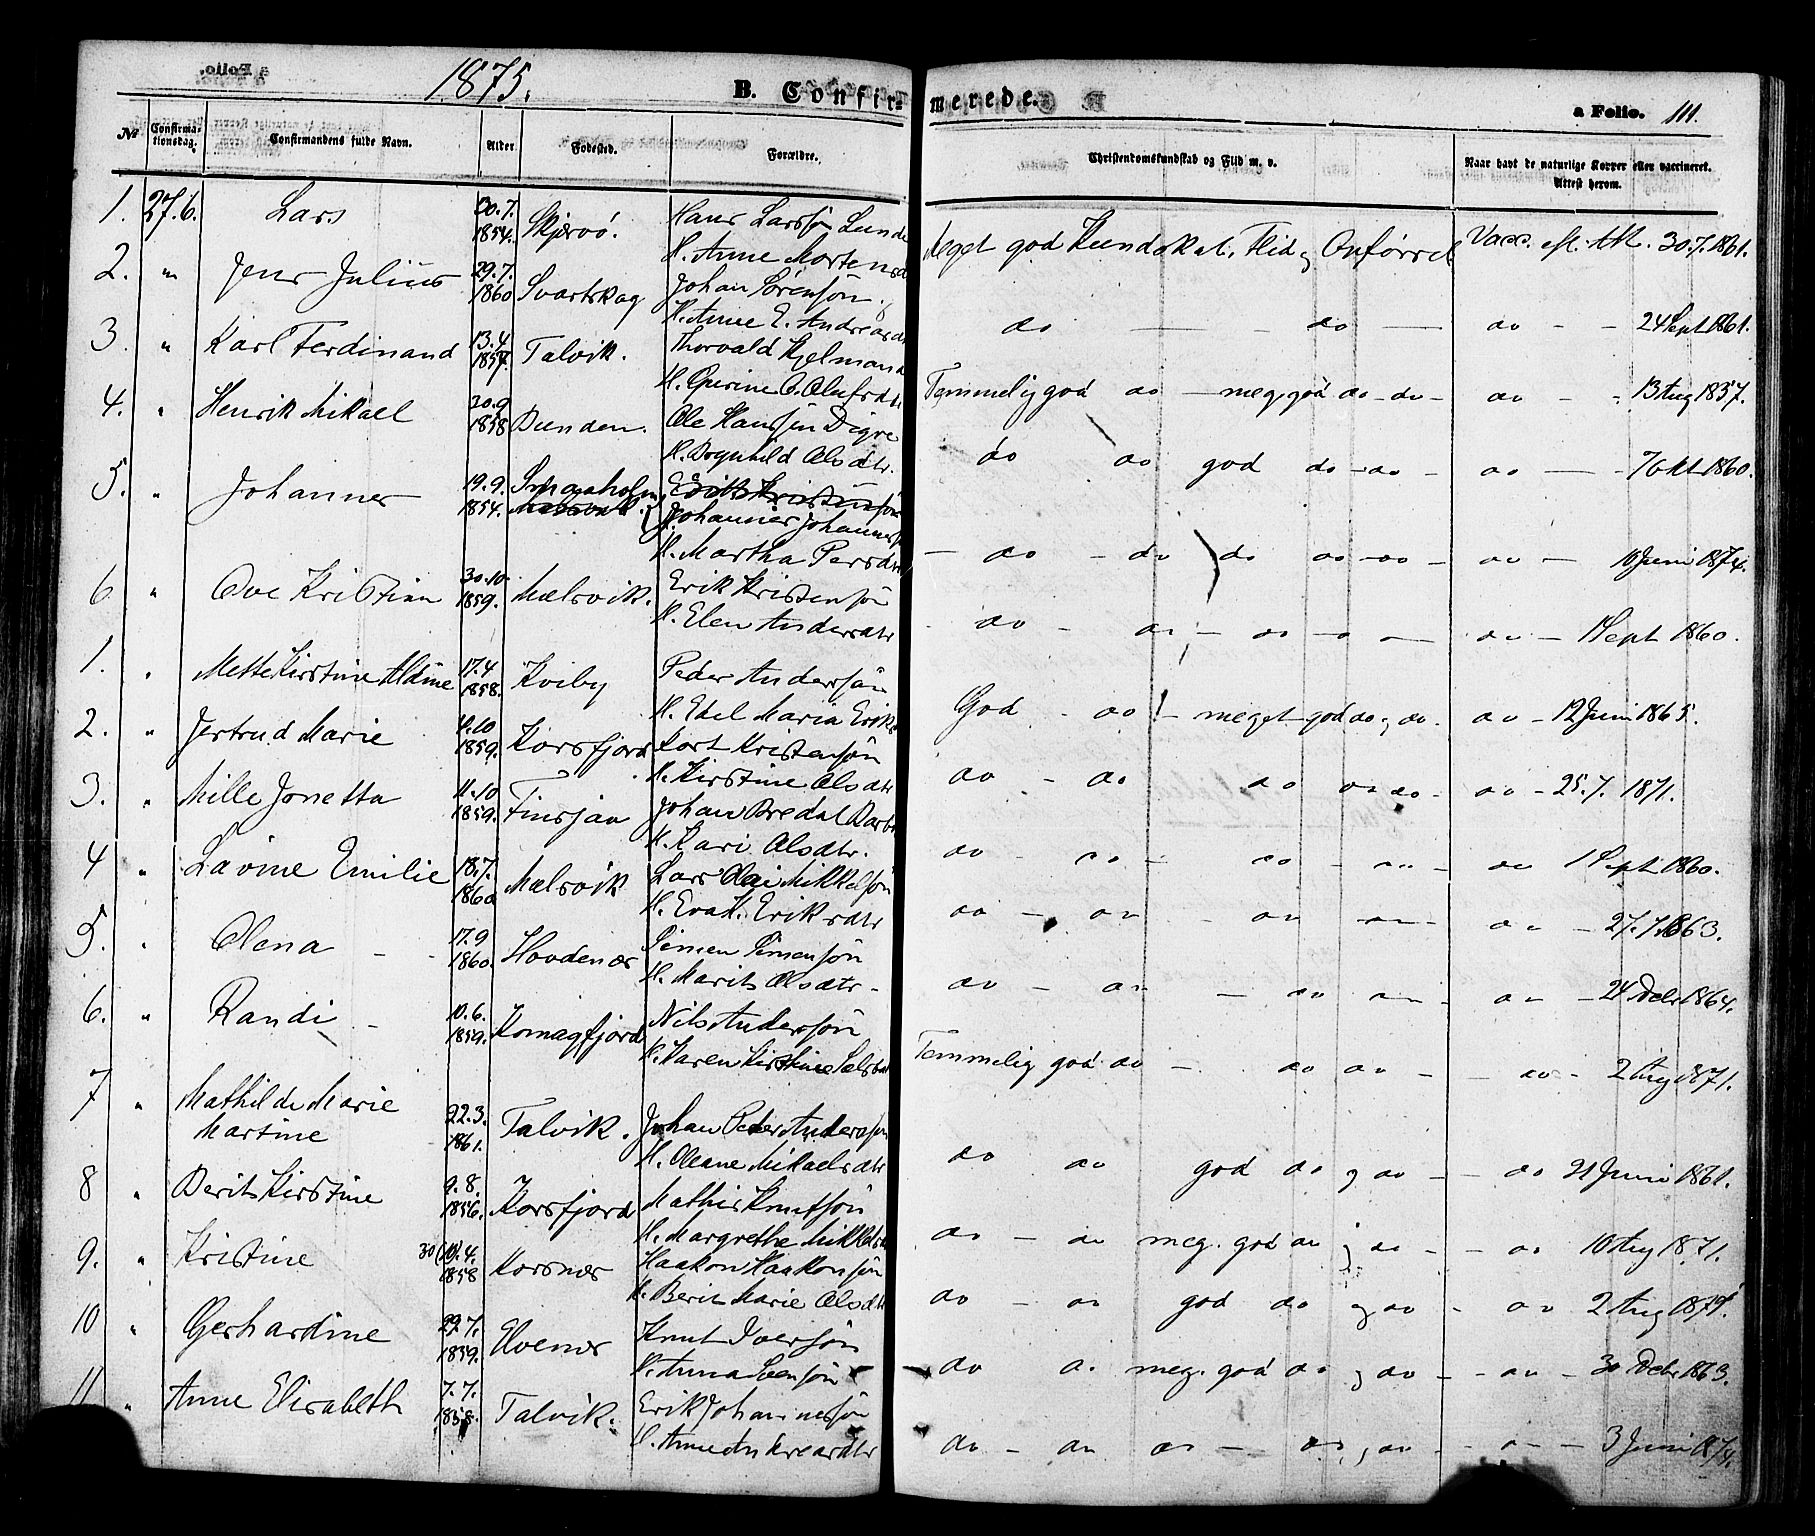 1875.
B. Confirmerede.
a Folio. 111.
No Confirmationsdag. Confirmandens fulde Navn. Alder Fødested. Forældre. Christendomskundskab og Flid m. v. Naar havt de naturlige Kopper eller vaccineret. Attest herom.
1. 27.6. Lars 30.7. 1854. Skjervö. Hans Larssön Lunde
H. Anne Mortensd Meget god Kundskab, Flid og Opförsel Vacc. efl. Att. 30.7.1861.
2. " Jens Julius 29.7. 1860 Svartskog Johan Sörensön
H. Anne E. Andreasd do do do 24 Sept 1861.
3. " Karl Ferdinand 13.4 1857. Talvik. Thorvald Kjelmand
H. Gurine O. Olufsdtr Temmelig god do meg. god do - do - do 13 Aug 1857.
4. " Henrik Mikael 30.9 1858 Bunden. Ole Hanssön Digre
H. Bognhild Olsdtr. do do god do - do - do 7 Okt 1860.
5. " Johannes 19.9. 1854. Johannes Johanness
H. Martha Persdtr do - do do do - do - do Juni 1874.
6. " Ove Kristian 30.10. 1859. Mælsvik. Erik Kristensön
H. Elen Andersdtr do - do - do - do - do - 1 Sept 1860.
1. " Mette Kirstine Aldine 17.4 1858. Kviby Peder Anderssön
H. Edel Maria Eriks God - do - meget god do og do - do - 12 Juni 1865.
2. " Jertrud Marie 11.10 1859. Korsfjord Kort Kristensön
H. Kirstine Olsdtr do - do do do do - do - 25.7. 1871.
3. " Mille Jonetta 11.10 1859. Finsjan Johan Bredal Barb
H. Kari Olsdtr. do - do - do - do - do 1 Sept 1860.
4 " Lavine Emilie 18.7. 1860 Mælsvik Lars Olai Mikkelsön
H. Eva K. Eriksdtr do - do - do do - do - 27.7.1863.
5. " Olena 17.9 1860. Hovdenæs Simen Simensön
H. Marit Olsdtr - do - do - do do - do - 24 Debr 1864.
6. " Randi 10.6. 1859. Komagfjord Nils Anderssön
H. Karen Kirstine Temmelig god do - do do - do - 2 Aug 1871.
7 " Mathilde Marie
Martine 22.3. 1861. Talvik. Johan Peder Anderssön
H. Oleane Mikaelsdtr do do god do og do - do 21 Juni 1861.
8 " Berit Kirstine 9.8. 1856. Korsfjord Mathis Knutsön
H. Margrethe Mikkelsd do - do meg. god do og do - do 10 Aug 1871.
9. " Kristine 30 4. 1858 Korsnæs Haakon Haakonsön
H. Berit Marie Olsdtr do - do god do og do - do 2 Aug 1871.
10 " Gerhardine 29.7. 1859. Elvenes Knut Iversön
H. Anna Svensön do do meg. god do og do - do - 30 Debr 1863.
11 " Anne Elisabeth 7.7. 1858. Talvik. Erik Johannessön
H. Anne Andreasdtr do - do do - do og do - do - 3 Juni 1874.